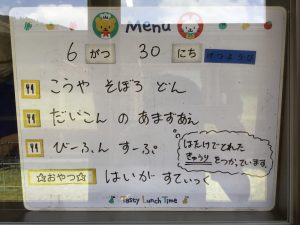 Menu
6 がつ 30 にち げつようび
こうや そぼろ どん
だいこん の あまずあえ
びーふん すーぷ
はたけでとれた
きゅうり をつかっています
☆おやつ☆ はいが すてぃっく
Tasty Lunch Time